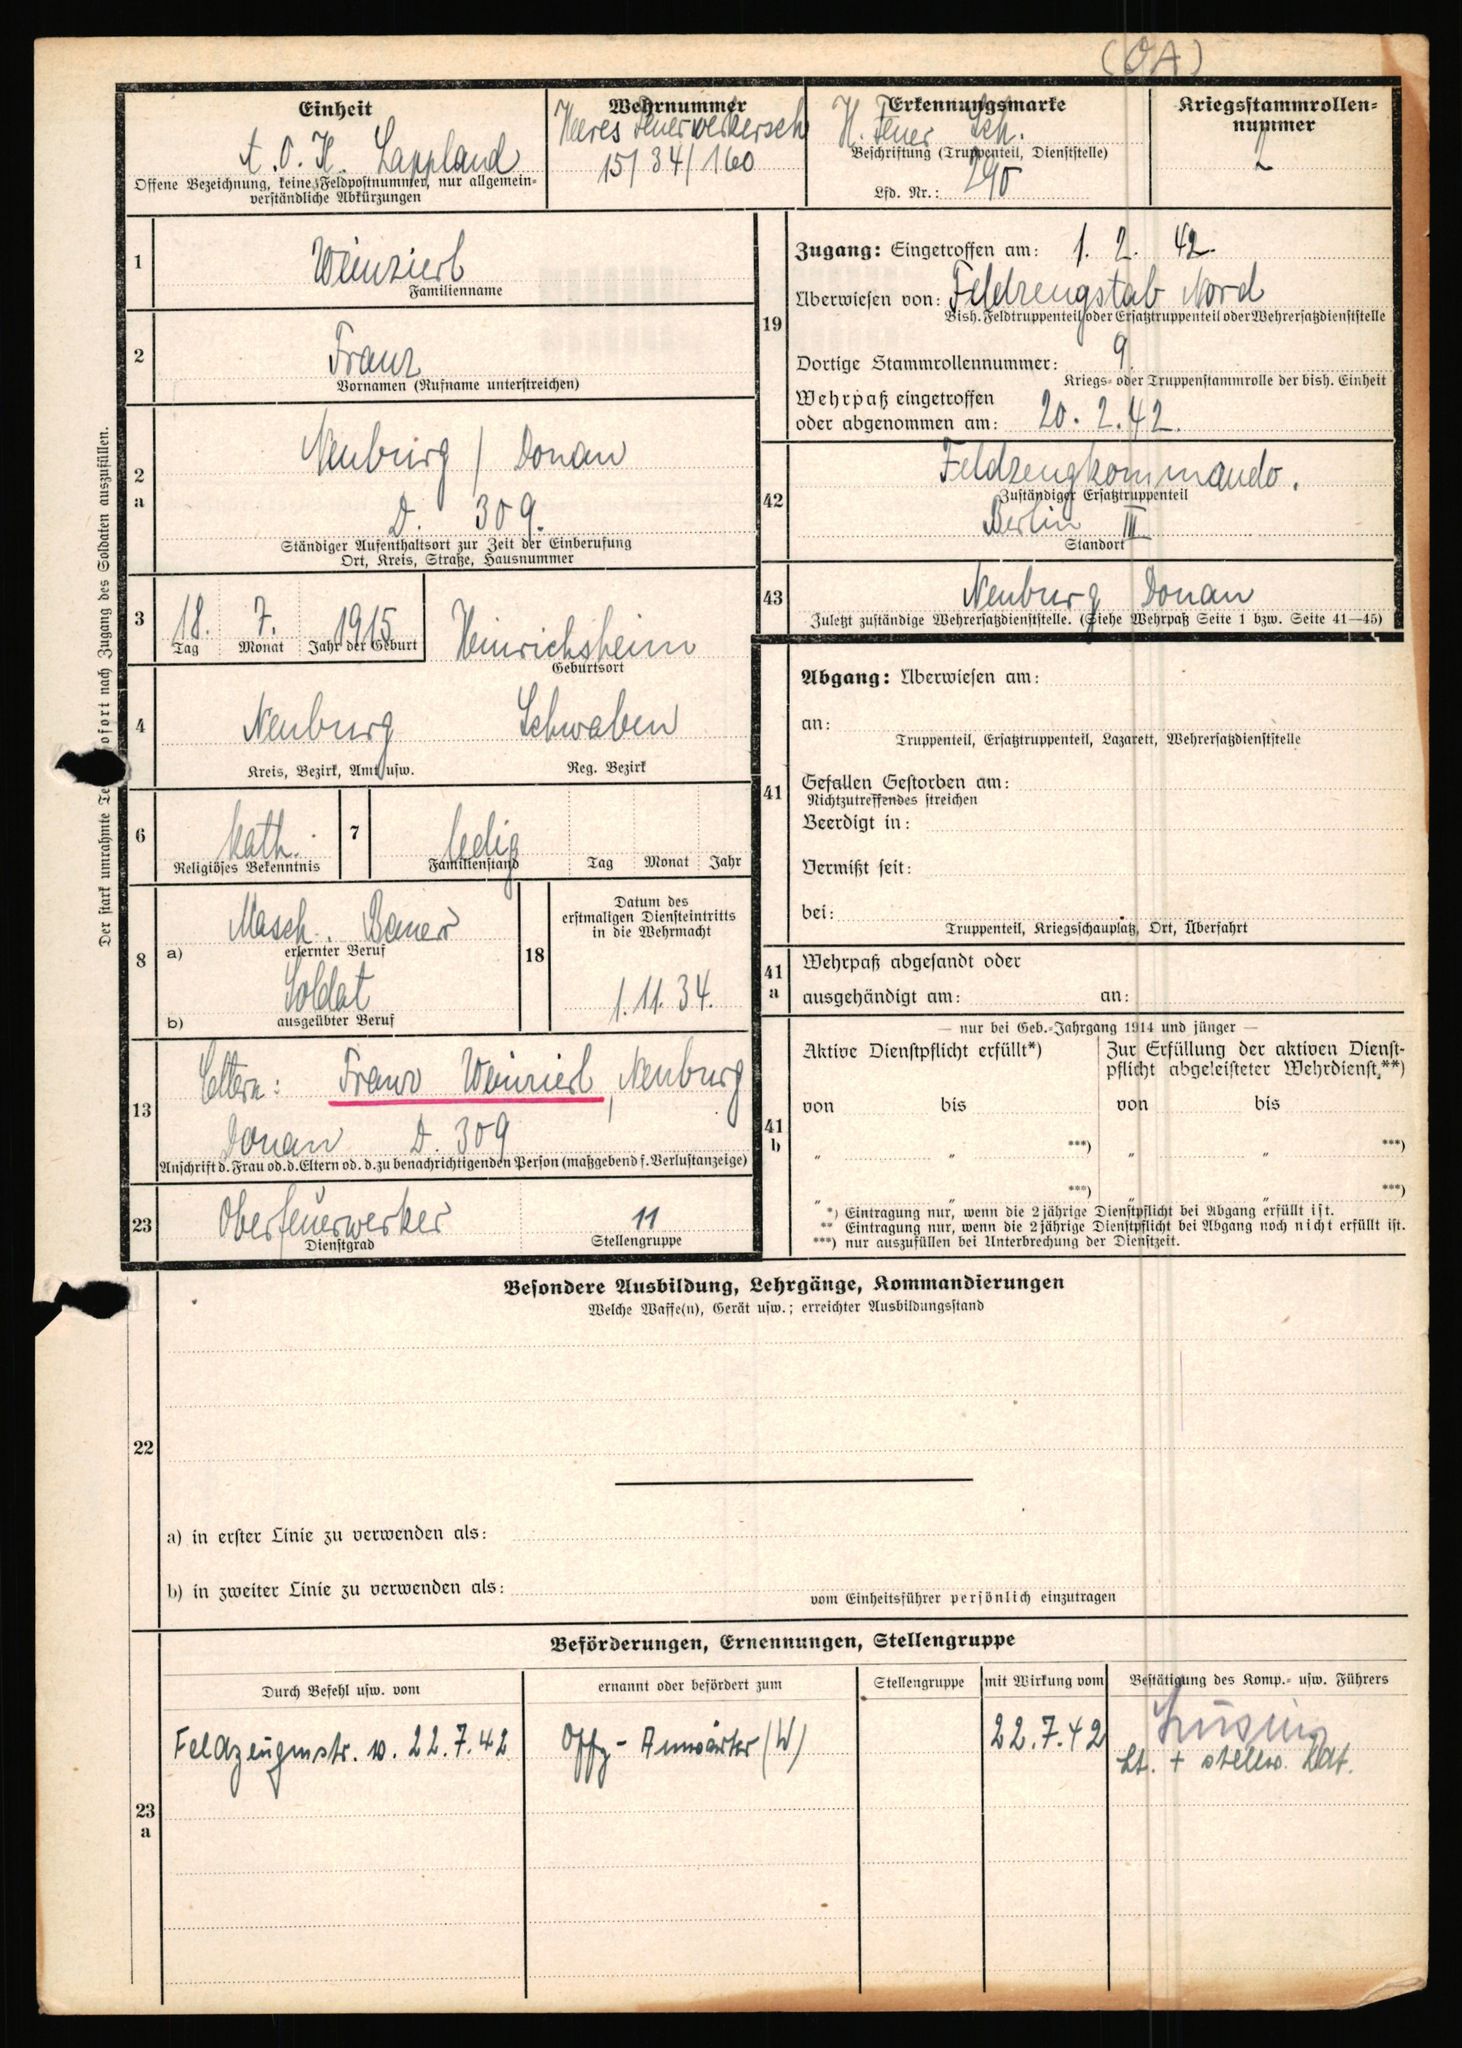 (OA)
Einheit
A. O. K. Lappland
Offene Bezeichnung, keine Feldpostnummer, nur allgemein-
verständliche Abkürzungen
Wehrnummer
Heeres Feuerwerkersch
15/34/160
Erkennungsmarke
H. Feuer Sch.
Beschriftung (Truppenteil, Dienststelle)
Lfd. Nr.: 290
Kriegsstammrollen-
nummer
2
Der stark umrahmte Te ofort nach Zugang des Soldaten auszufüllen.
1
Weinzierl
Familienname
2
Franz
Vornamen (Rufname unterstreichen)
2
a
Neuburg / Donau
D. 309.
Ständiger Aufenthaltsort zur Zeit der Einberufung
Ort, Kreis, Straße, Hausnummer
3
18. 7. 1915
Tag Monat Jahr der Geburt
Heinrichsheim
Geburtsort
4
Neuburg Schwaben
Kreis, Bezirk, Amt usw. Reg. Bezirk
6
kath.
Religiöses Bekenntnis
7
ledig
Familienstand Tag Monat Jahr
8
a) Masch. Bauer
erlernter Beruf
Soldat
b) ausgeübter Beruf
18
Datum des
erstmaligen Diensteintritts
in die Wehrmacht
1. 11. 34.
13
Eltern: Franz Weinzierl, Neuburg
Donau D. 309
Anschrift d. Frau od. d. Eltern od. d. zu benachrichtigenden Person (maßgebend f. Verlustanzeige)
23
Oberfeuerwerker 11
Dienstgrad Stellengruppe
19
Zugang: Eingetroffen am: 1. 2. 42.
Überwiesen von: Feldzeugstab Nord
Bish. Feldtruppenteil oder Ersatztruppenteil oder Wehrersatzdienststelle
Dortige Stammrollennummer: 9.
Kriegs- oder Truppenstammrolle der bish. Einheit
Wehrpaß eingetroffen
oder abgenommen am: 20. 2. 42.
42
Feldzeugkommando.
Zuständiger Ersatztruppenteil
Berlin III
Standort
43
Neuburg Donau
Zuletzt zuständige Wehrersatzdienststelle. (Siehe Wehrpaß Seite 1 bzw. Seite 41—45)
41
Abgang: Überwiesen am:
an:
Truppenteil, Ersatztruppenteil, Lazarett, Wehrersatzdienststelle
Gefallen Gestorben am:
Nichtzutreffendes streichen
Beerdigt in:
Vermißt seit:
bei:
Truppenteil, Kriegsschauplatz, Ort, Überfahrt
41
a
Wehrpaß abgesandt oder
ausgehändigt am: an:
41
b
— nur bei Geb.-Jahrgang 1914 und jünger —
Aktive Dienstpflicht erfüllt*)
Zur Erfüllung der aktiven Dienst-
pflicht abgeleisteter Wehrdienst,**)
von bis von bis
„ „ ***) „ „ ***)
„ „ ***) „ „ ***)
*) Eintragung nur, wenn die 2 jährige Dienstpflicht bei Abgang erfüllt ist.
** Eintragung nur, wenn die 2 jährige Dienstpflicht bei Abgang noch nicht erfüllt ist.
***) nur auszufüllen bei Unterbrechung der Dienstzeit.
22
Besondere Ausbildung, Lehrgänge, Kommandierungen
Welche Waffe(n), Gerät usw.; erreichter Ausbildungsstand
a) in erster Linie zu verwenden als:
b) in zweiter Linie zu verwenden als:
vom Einheitsführer persönlich einzutragen
23
a
Beförderungen, Ernennungen, Stellengruppe
Durch Befehl usw. vom
ernannt oder befördert zum
Stellengruppe
mit Wirkung vom
Bestätigung des Komp.- usw. Führers
Feldzeugmstr. v. 22.7.42
Offz-Anwärter (W)
22.7.42
Lt. + stellv. Kdt.